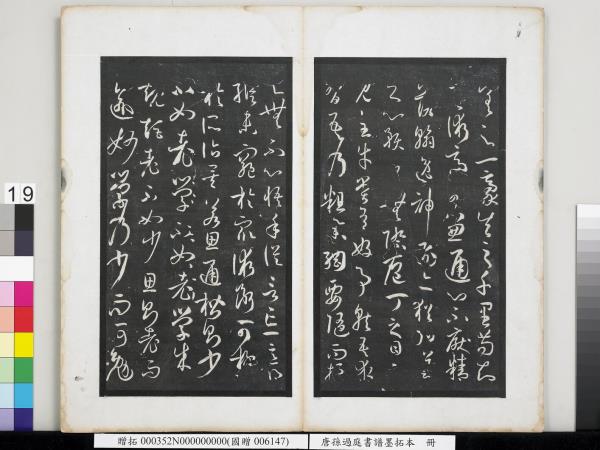 差之一豪失之千里苟知
其術適可兼通心不厭精
落翰逸神飛亦猶弘羊
之心預乎無際庖丁之目不
見全牛嘗有好事就吾求
習吾乃粗舉綱要隨而授
之無不心悟手從言忘意得
縱未窮於眾術斷可極
於所詣矣若思通楷則少
不如老學不如老學成
規矩老不如少思則老而
逾妙學乃少而可勉
19
贈拓 000352N000000000(國贈 006147)
唐孫過庭書譜墨拓本 冊